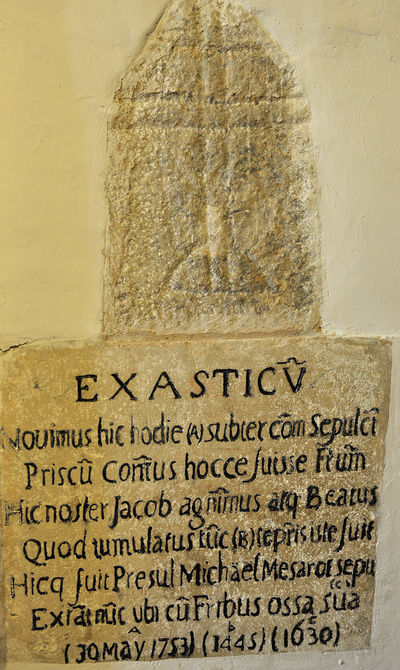 EXASTICŪ
Novimus hic hodie (A) subter cōm Sepulcī
Priscū Comīus hocce fuisse Frūm
Hic noster Jacob agnīmus atq Beatus
Quod tumulatus tūc (B) tepris iste fuit
Hicq fuit Presul Michäel Mesarot sepu
ubi cū Fribus ossa sūa
(30 MAY 1753) (1445) (1630)